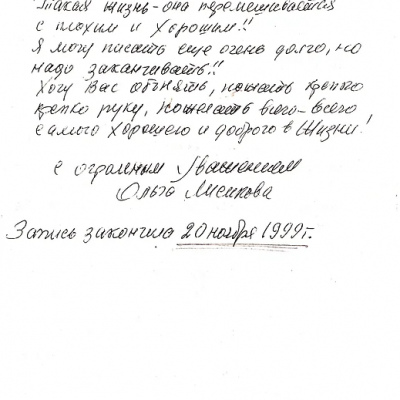 Такая жизнь - она перемешивается
с плохим и хорошим!!
Я могу писать еще очень долго, но
надо заканчивать!!
Хочу Вас обнять, пожать крепко
крепко руку, пожелать всего-всего
самого хорошего и доброго в Жизни!
с огромным Уважением
Ольга
Запись закончила 20 ноября 1999г.